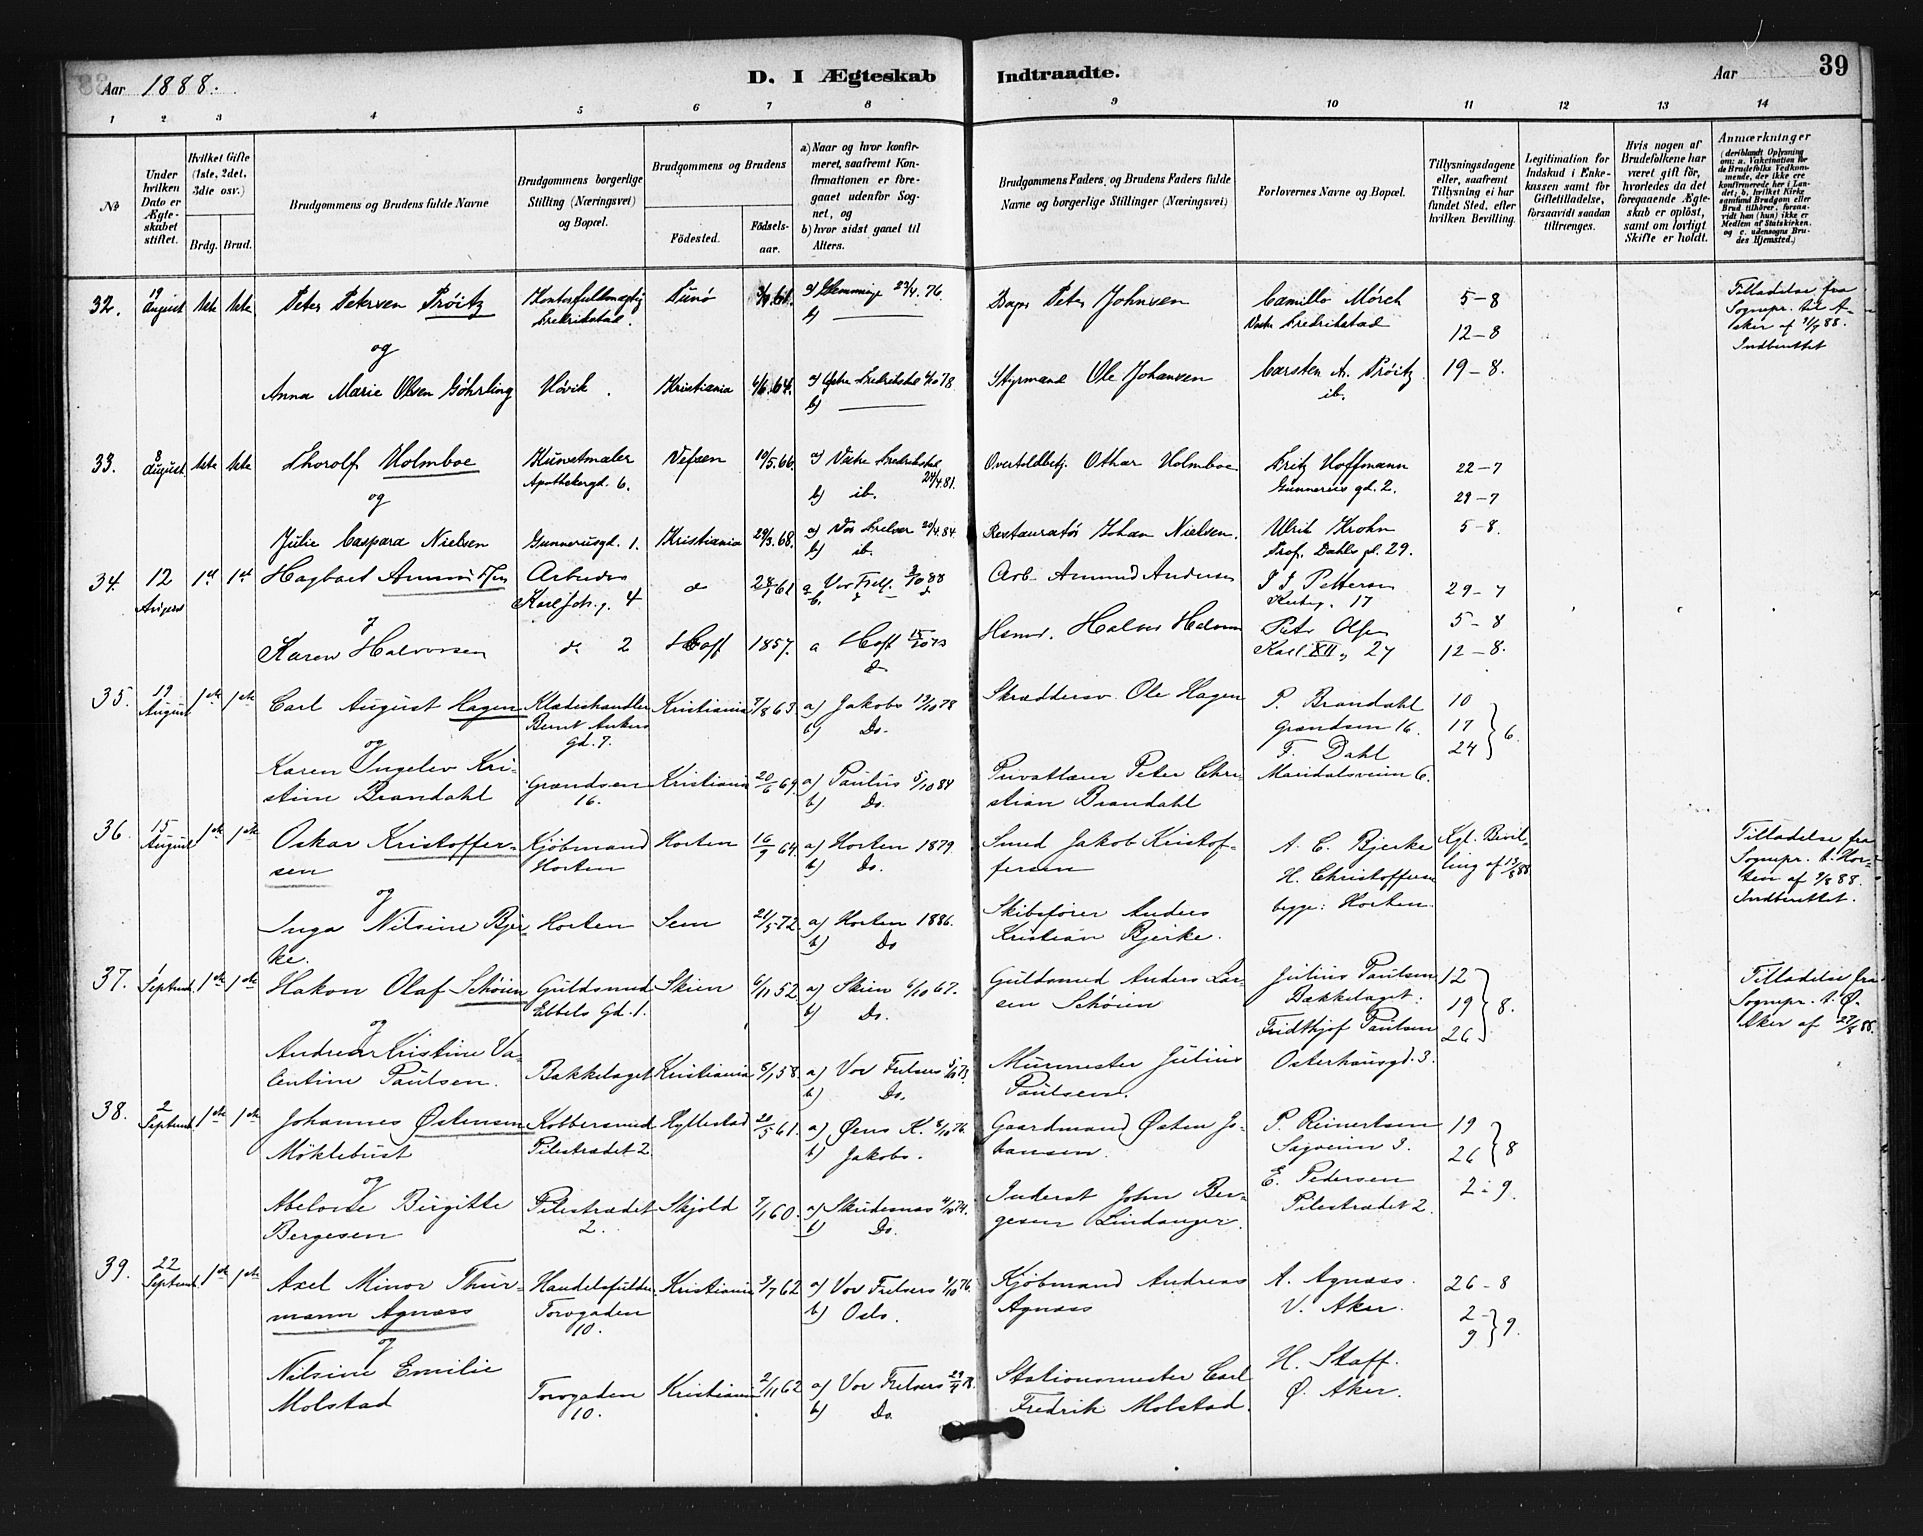 Aar 1888.
D. I Ægteskab Indtraadte.
Aar 39
1 2 3 4 5 6 7 8 9 10 11 12 13 14
№
Under hvilken Dato er Ægteskabet stiftet.
Hvilket Gifte (1ste, 2det, 3die osv.)
Brdg. Brud.
Brudgommens og Brudens fulde Navne
Brudgommens borgerlige Stilling (Næringsvei) og Bopæl.
Brudgommens og Brudens
Födested. Födselsaar.
a) Naar og hvor konfirmeret, saafremt Konfirmationen er foregaaet udenfor Sognet, og
b) hvor sidst gaaet til Alters.
Brudgommens Faders og Brudens Faders fulde Navne og borgerlige Stillinger (Næringsvei)
Forlovernes Navne og Bopæl.
Tillysningsdagene eller, saafremt Tillysning ei har fundet Sted, efter hvilken Bevilling.
Legitimation for Indskud i Enkekassen samt for Giftetilladelse, forsaavidt saadan tiltrænges.
Hvis nogen af Brudefolkene har været gift för, hvorledes da det foregaaende Ægteskab er oplöst, samt om lovligt Skifte er holdt.
Anmærkninger (deriblandt Oplysning om: a. Vakcination for de Brudefolks Vedkommende, der ikke ere konfirmerede her i Landet; b. hvilket Kirkesamfund Brudgom eller Brud tilhörer, forsaavidt han (hun) ikke er Medlem af Statskirken, og c. udensogns Brudes Hjemsted.)
32. 19 August 1ste 1ste Peter Petersen Pröitz Kontorfuldmægtig Fredrikstad. Tunö a) Glemminge 23/4. 76. b) — Peter Johnsen Camillo Mörch Vestre Fredrikstad 5-8 12-8 Tilladelse fra Sognepr. til Aker af 88. Indberettet
og
Anna Marie Olsen Göhrling Hövik. Kristiania 6/6.64. a) Östre Fredrikstad 78 b) — Styrmand Ole Johansen Carsten A. Pröitz ib. 19-8.
33. 8 August. 1ste 1ste Thorolf Holmboe Kunstmaler Apothekergd. 6. Vefsen 10/5.66. a) Vestre Fredrikstad 24/4.81. b) ib. Overtoldbetj. Othar Holmboe Fritz Hoffmann Gunnerus gd. 2. 22-7 29-7
og
Julie Caspara Nielsen Gunnerusgd. 1. Kristiania 29/3.68. a) Vor Frelser 20/4.84. b) ib. Restauratör Johan Nielsen. Ulrik Krohn Prof. Dahls gd. 29. 5-8.
34. 12 August 1st 1st Hagbart Amundsen Arbeider Karl Joh. g. 4 d 61 a. Vor Frels. 88 b. Arb. Amund Andersen J J Pettersen 17 29-7
Karen Halvorsen d. 2 Hoff 1857. a Hoff 15/10 73 d Halvor Halvorsen Peter Olsen Karl XII g. 27 5-8 12-8.
35. 19 August 1ste 1ste Carl August Hagen Klædeshandler Bernt Ankers Gd. 7. Kristiania 7/8 63 a) Jakobs 13/10 78 b) Do. Skræddersv. Ole Hagen P. Brandahl Grændsen 16. 10 17 24 } 6.
og
Karen Ingelev Kristine Brandahl Grændsen 16. Kristiania 20/6 69. a) Paulus 5/10 84 b) Do. Privatlærer Peter Christian Brandahl F. Dahl Maridalsveien 6.
36. 15 August 1ste 1ste Oskar Kristoffersen Kjöbmand Horten Horten 16/9 64. a) Horten 1879 b) Do. Smed Jakob Kristoffersen A. C. Bjerke H. Christoffersen begge: Horten. Kgl. Bevilling af 13/8 88 Tilladelse fra Sognepr. t. Horten af 9/8 88. Indberettet.
og
Inga Nilsine Bjerke. Horten Sem 21/5 72 a) Horten 1886. b) Do Skibsförer Anders Kristian Bjerke.
37. 1 Septemb. 1ste 1ste Hakon Olaf Schöien Guldsmed Ebbels Gd. 1. Skien 6/11 52 a) Skien 6/10 67. b) Do. Guldsmed Anders Larsen Schöien Julius Paulsen Bækkelaget: 12 19 26 } 8. Tilladelse fra Sognepr. t. Ö. Aker af 27/8 88.
og
Andrea Kristine Valentine Paulsen. Bækkelaget Kristiania 8/1 58. a) Vor Frelsers 5/10 73. b) Do. Murmester Julius Paulsen. Fridthjof Paulsen Osterhausgd. 3.
38. 2 Septemb. 1ste 1ste Johannes Östensen Möklebust Kobbersmed Pilestrædet 2. Hyllestad 21/5 61. a) Öens K. 8/10 76. b) Jakobs. Gaardmand Östen Johansen. P. Reinertsen Sagveien 3. 19 26 } 8 2-9.
og
Abelone Birgitte Bergesen Pilestrædet 2. Skjold 7/1 60. a) Skudesnæs 4/10 74. b) Do. Inderst John Bergesen Lindanger. E. Pedersen Pilestrædet 2.
39. 22 Septemb. 1ste 1ste Axel Minor Thurmann Agnæss Handelsfuldm. Torvgaden 10. Kristiania 3/7 62 a) Vor Frelsers 1/10 76. b) Oslo. Kjöbmand Andreas Agnæss A. Agnæss. V. Aker. 26-8 2- 9 } 9.
og
Nilsine Emilie Molstad Torvgaden 10. Kristiania 2/11 62 a) Vor Frelsers 29/4 78. b) Do. Stationsmester Carl Fredrik Molstad. H. Staff. Ö. Aker.